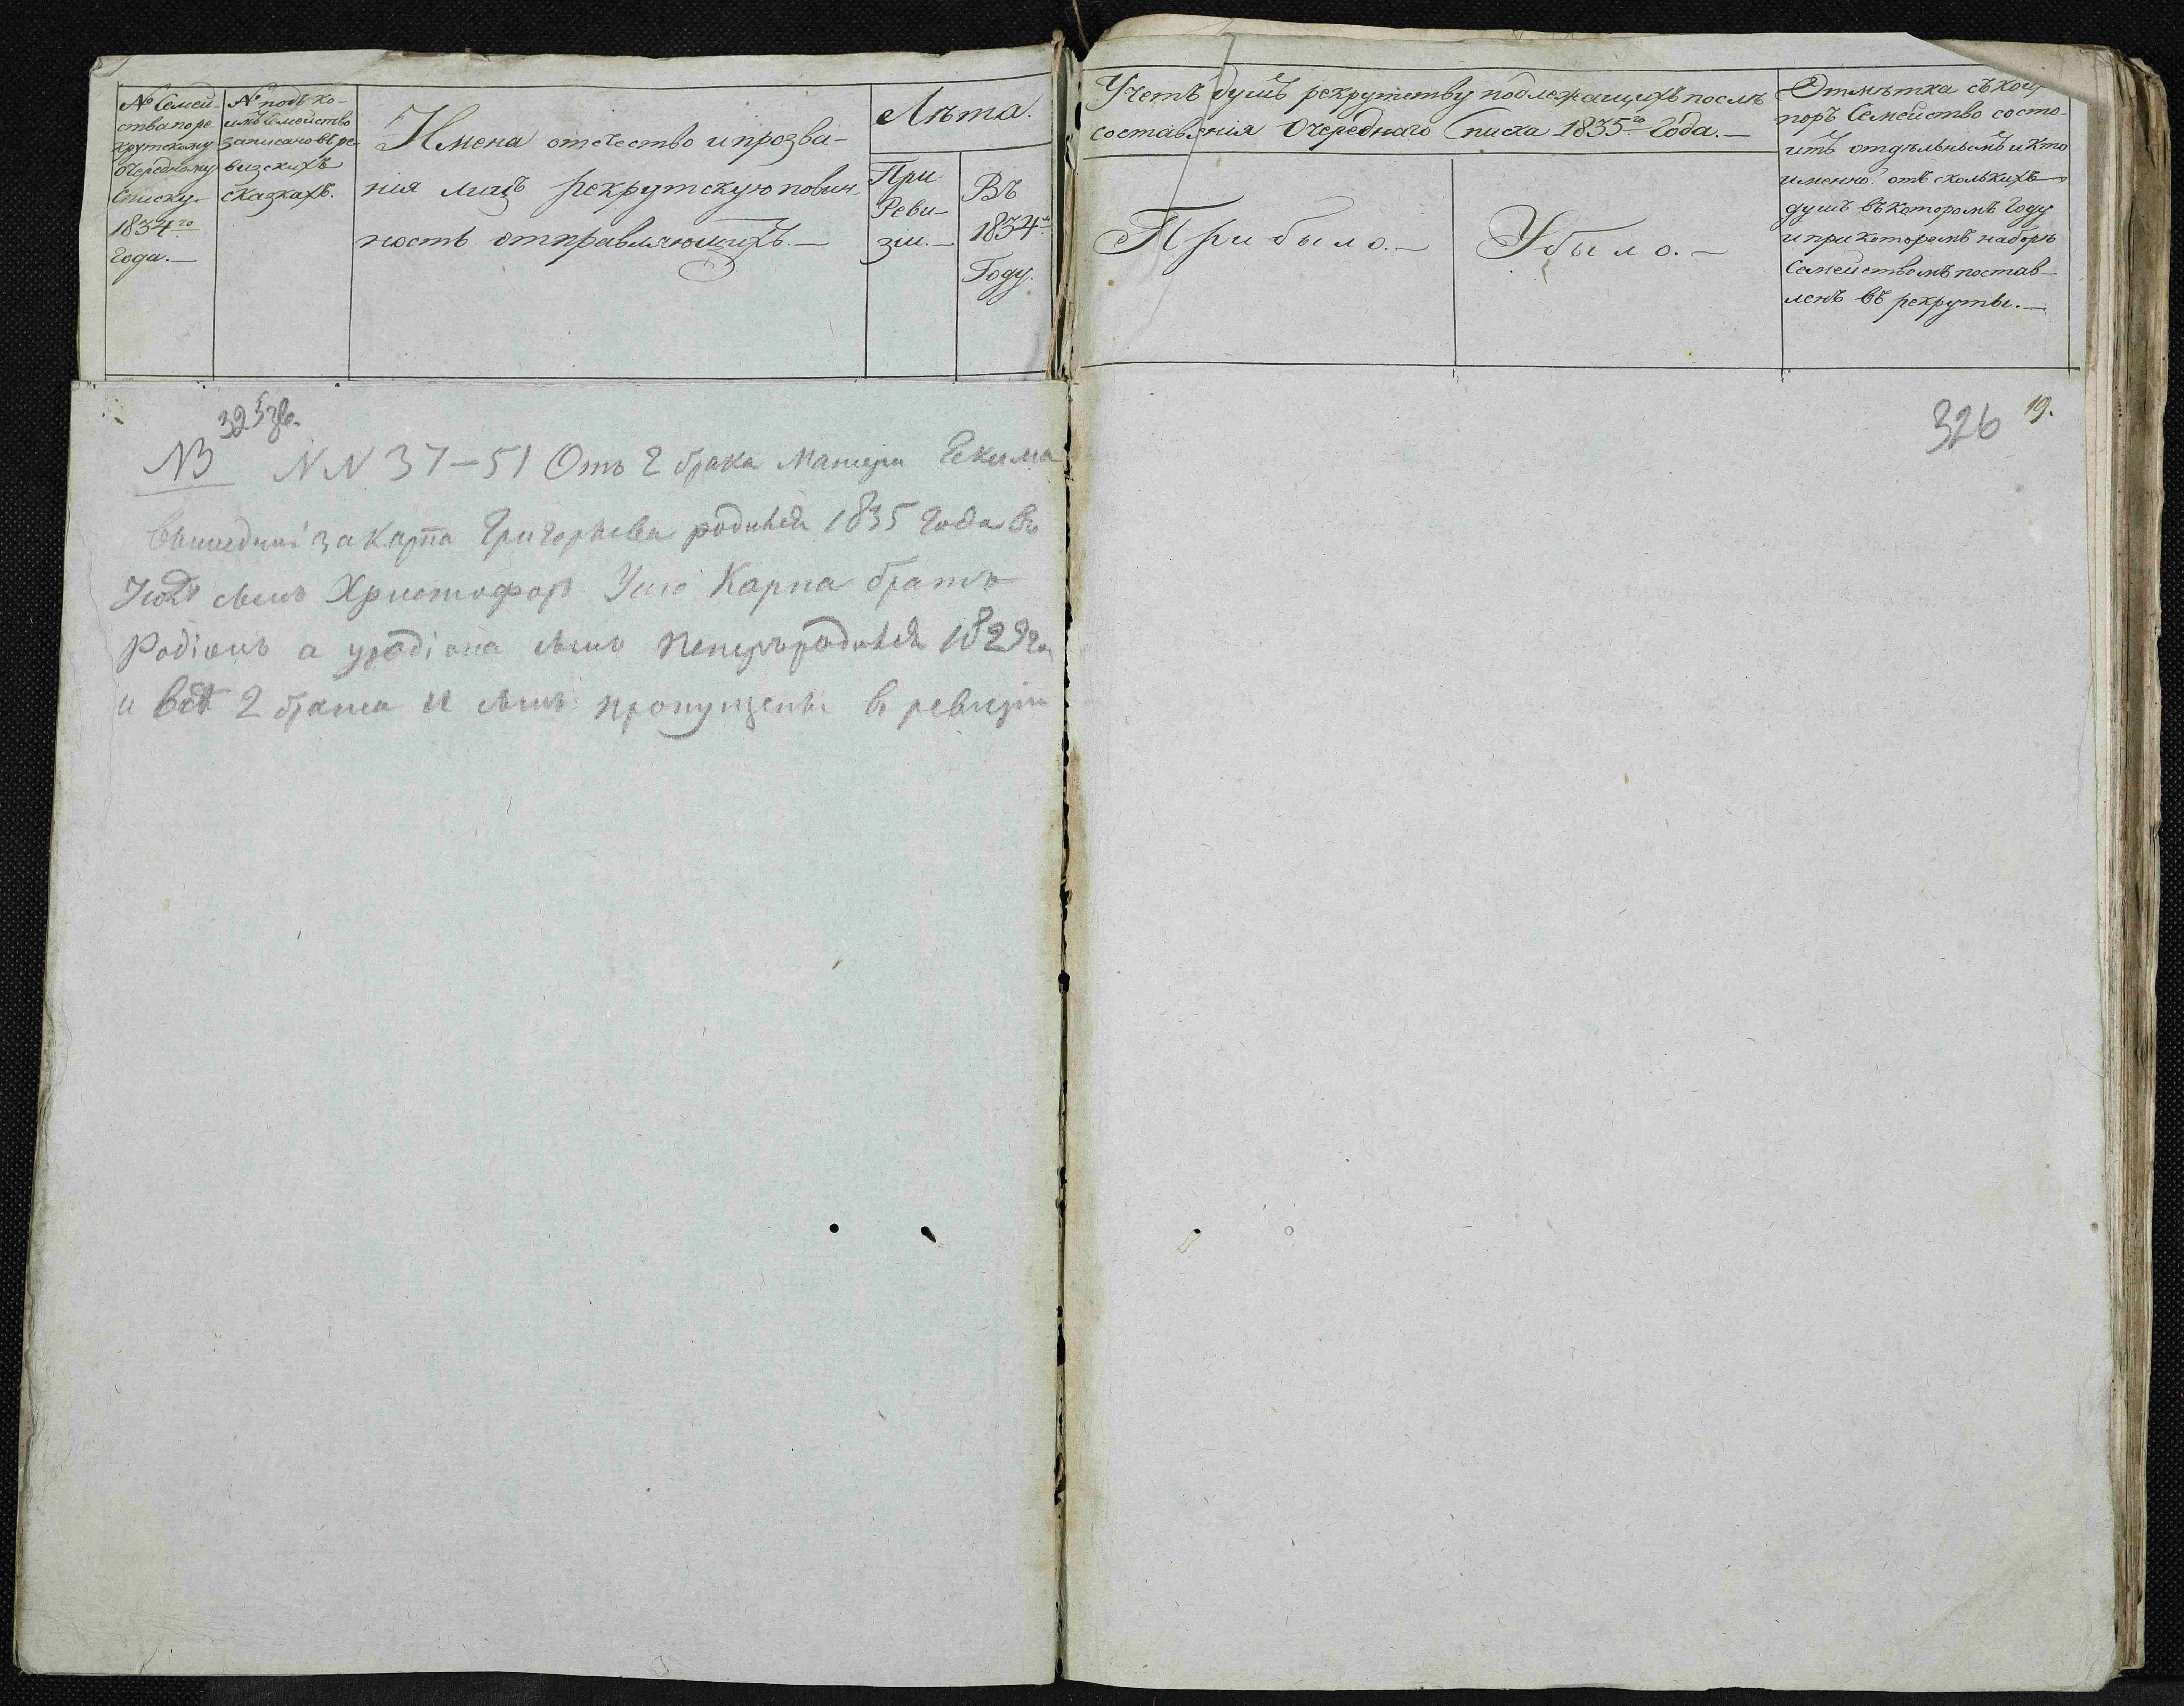 № Семей-
ства по ре
крутскому
очередному
списку
1834го
Года.—
№ подъ ко-
имъ Семейство
записано въ ре
визскихъ
сказкахъ.
Имена отечество и прозва-
нія лицъ рекрутскую повин
ность отправляющихъ.—
Лѣта.
При
Реви-
зіи.—
Въ
1834м
Году.
Учетъ душъ рекрутству подлежащихъ послѣ
составленія Очереднаго Списка 1835го Года.—
Прибыло.—
Убыло.—
Отмѣтка съ кои
поръ Семейство состо-
итъ отдѣльнымъ и кто
именно. отъ сколькихъ
душъ въ которомъ Году
и при которомъ наборѣ
Семействомъ постав-
ленъ въ рекруты.—
325
NB NN 37–51 Отъ 2 брака Матери Екима
вышедшей за Карпа Григорьева родился 1835 Года въ
сынъ Христофоръ У Карпа братъ
Родіонъ а у родіона сынъ Петръ родился 1829 го
и 2 брата и сынъ пропущены в ревизіи
326 19.